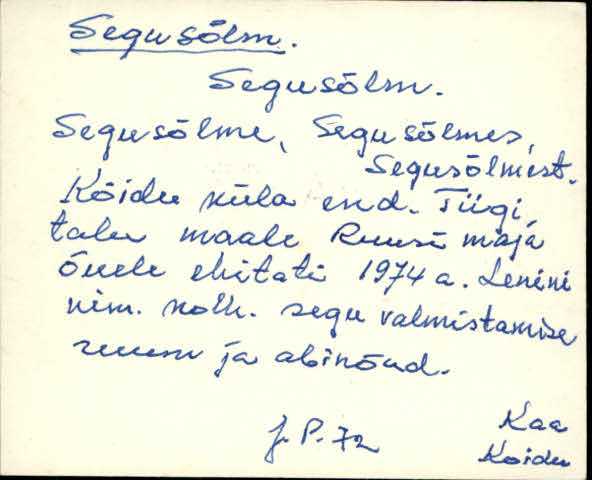 Segusõlm.
Segusõlm.
Segusõlme, Segusõlmes,
Segusõlmest.
Koidu küla end. Tiigi
talu maale Ruusi maja
õuele ehitati 1974 a. Lenini
nim. kolh. segu valmistamise
ruum ja abinõud.
J. P. 72
Kaa
Koidu